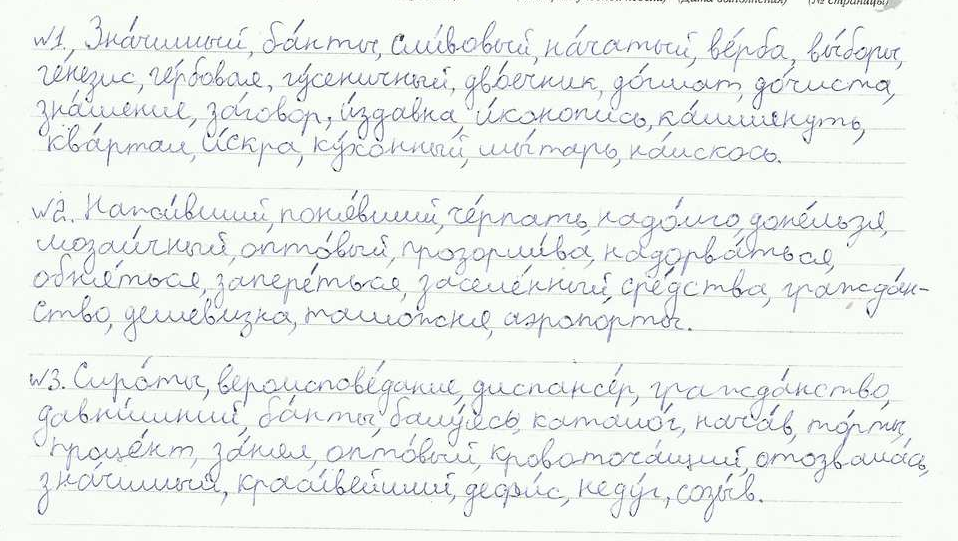 (Дата выполнения) (№ страницы)
№1. Зна́чимый, ба́нты, сли́вовый, на́чатый, ве́рба, вы́боры,
ге́незис, ге́рбовая, гу́сеничный, дво́ечник, до́гмат, до́чиста,
зна́мение, за́говор, и́здавна и́конопись, ка́шлянуть,
ква́ртал, и́скра, ку́хонный, мы́тарь, на́искось.
№2. Нажи́вший, поня́вший, че́рпать, надо́лго, доне́льзя,
мозаи́чный, опто́вый, прозорли́ва, надорва́ться,
обня́ться, запере́ться, заселе́нный, сре́дства, гражда́н-
ство, дешеви́зна, тамо́жня, аэропо́рты.
№3. Сиро́ты, вероиспове́дание, диспансе́р, гражда́нство,
давни́шний, ба́нты, балу́ясь, катало́г, нача́в, то́рты,
проце́нт, за́нял, опто́вый, кровоточа́щий, отозвала́сь,
зна́чимый, краси́вейший, дефи́с, неду́г, созы́в.